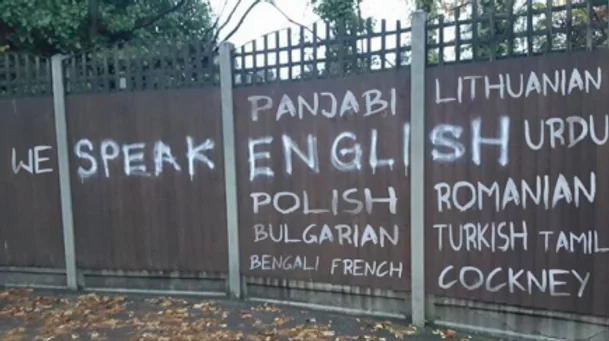 WE SPEAK ENGLISH
PANJABI
POLISH
BULGARIAN
BENGALI FRENCH
LITHUANIAN
URDU
ROMANIAN
TURKISH TAMIL
COCKNEY